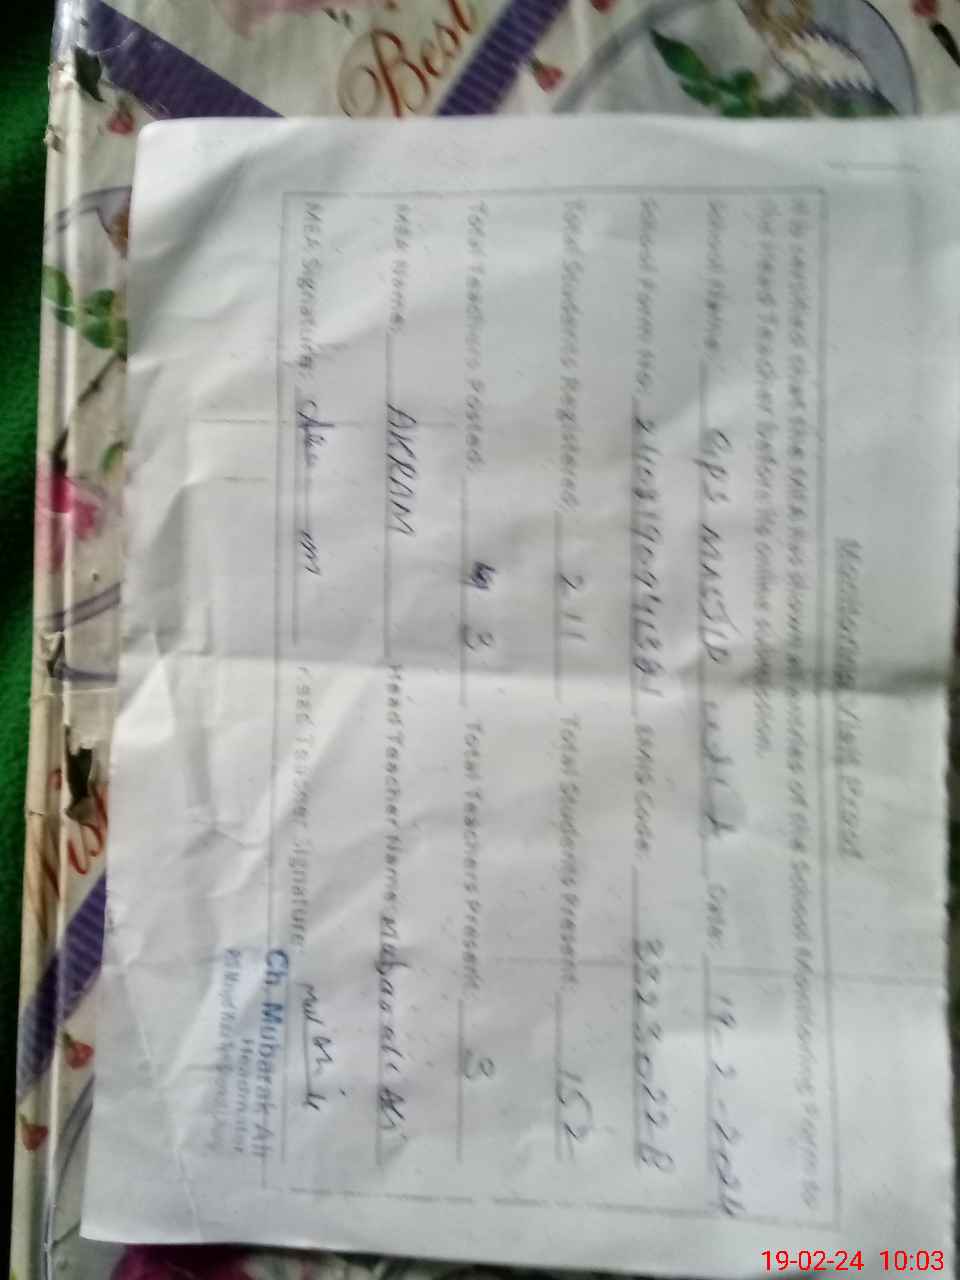 Best
Monitoring Visit Proof
It is certified that the MEA has shown all entries of the School Monitoring Form to
the Head Teacher before its online submission.
School Name: GPS MASJID Date: 19-2-2024
School Form No: EMIS Code:
Total Students Registered: 211 Total Students Present: 152
Total Teachers Posted: 3 Total Teachers Present: 3
MEA Name: AKRAM Head Teacher Name: Mubarak Ali
MEA Signature: Head Teacher Signature:
Ch. Mubarak Ali
Headmaster
19-02-24 10:03